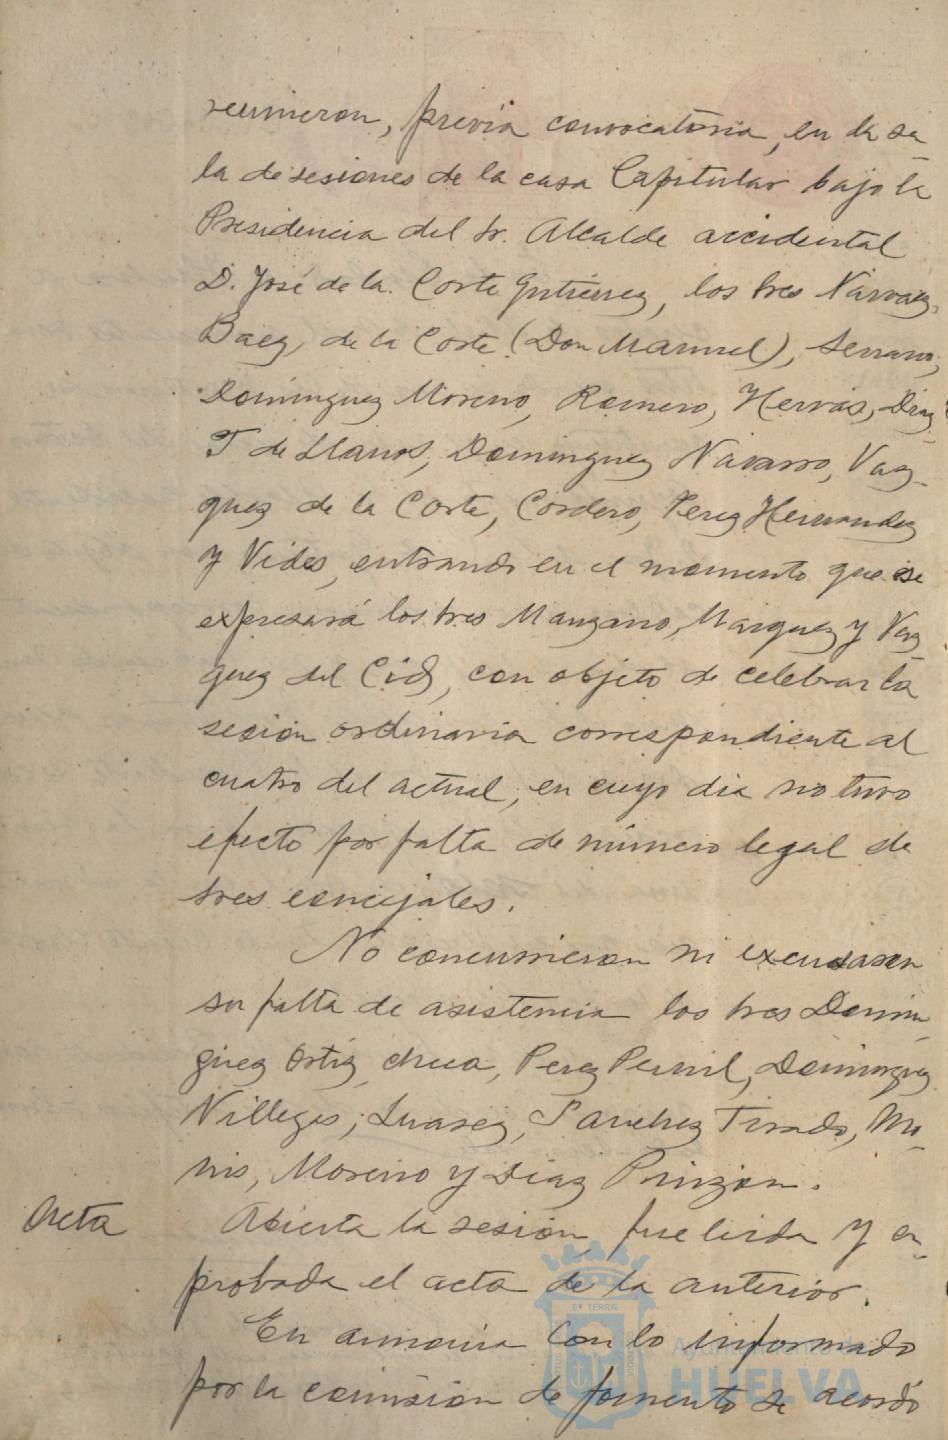 reunieron, previa convocatoria, en la sa
la de sesiones de la casa Capitular bajo la
Presidencia del Sr. Alcalde accidental
D. José de la Corte Gutierrez, los Sres Narvaez,
Baez, de la Corte (Don Manuel), Serrano,
Dominguez Moreno, Romero, Hervás, Diaz
T. de Llanos, Dominguez Navarro, Vaz-
quez de la Corte, Cordero, Perez Hernandez
y Vides, entrando en el momento que se
expresará los Sres Manzano, Marquez y Vaz
quez del Cid, con objeto de celebrar la
sesion ordinaria correspondiente al
cuatro del actual, en cuyo dia no tuvo
efecto por falta de número legal de
Sres concejales.
No concurrieron ni excusaron
su falta de asistencia los Sres Domin
guez Ortiz, Perez Pernil, Dominguez
Villegas, Suarez, Sanchez Tirado, Mo-
nis, Moreno y Diaz Pinzon.
Acta
Abierta la sesión, fue leida y a-
probada el acta de la anterior.
En armonia con lo informado
por la comision de fomento se acordó
EV TERRIS
Ayuntamiento de
HUELVA